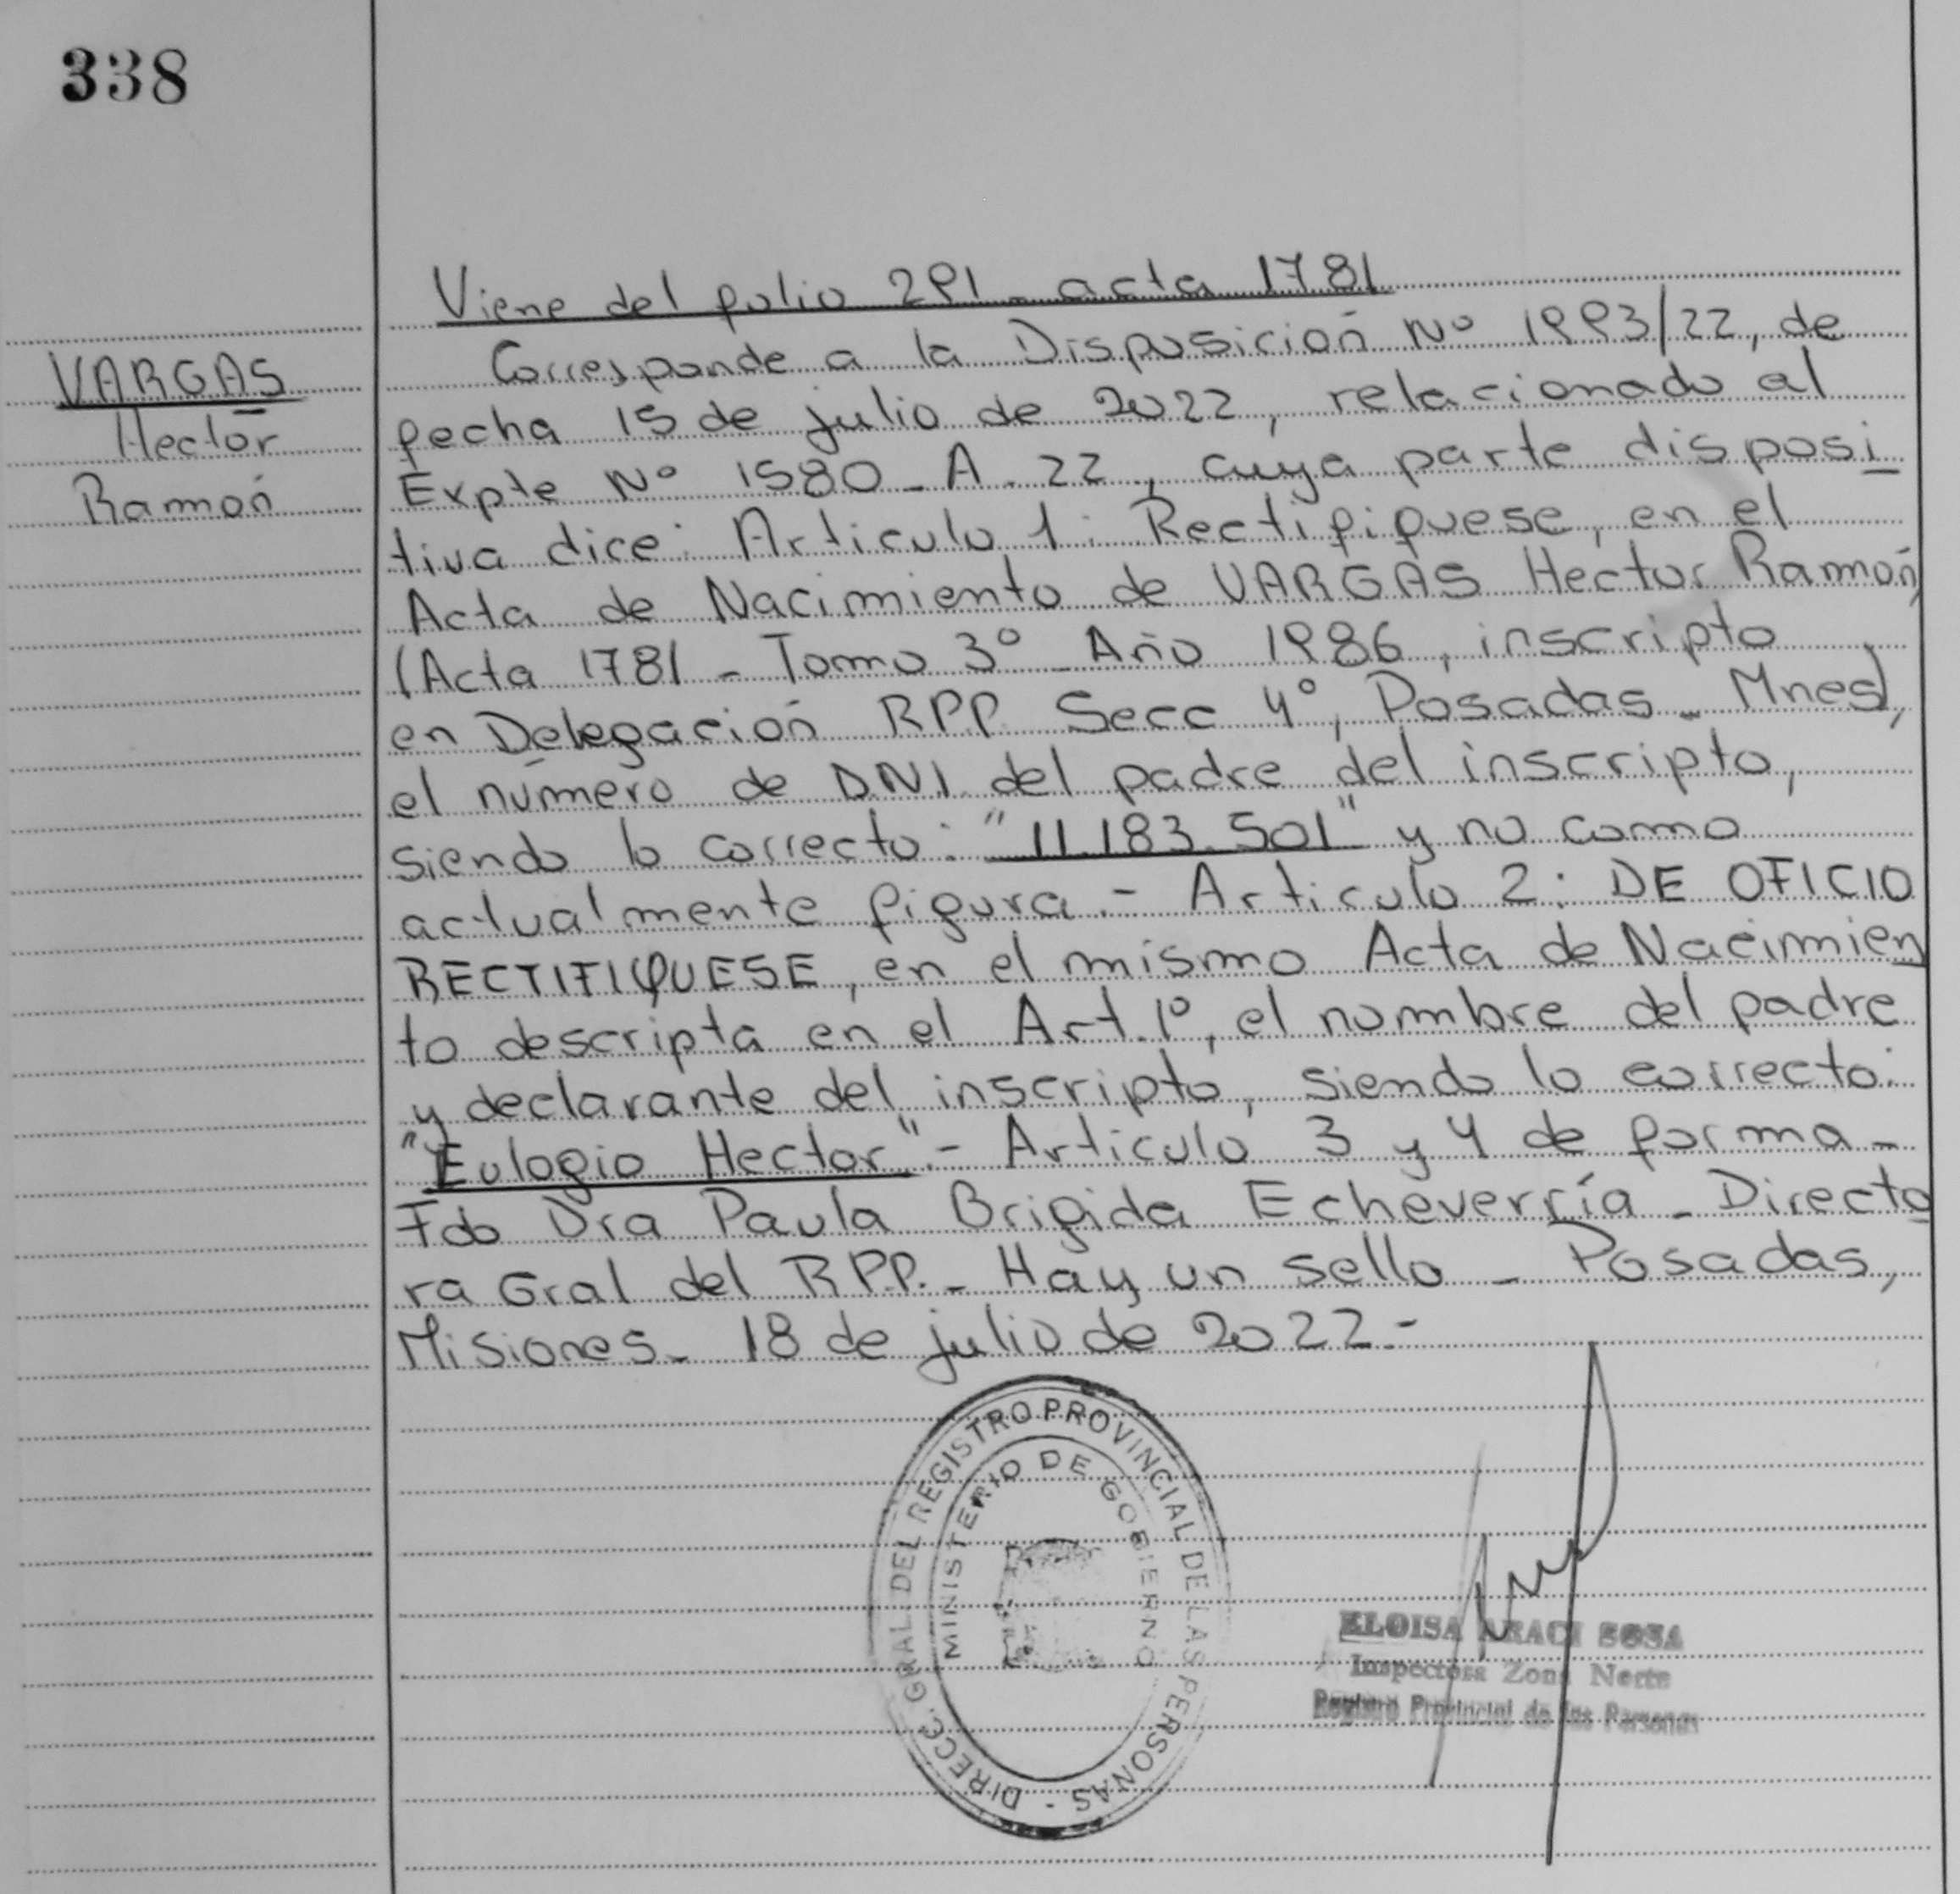 338
Viene del folio 291 - acta 1781
VARGAS
Hector
Ramón
Corresponde a la Disposición Nº 1993/22, de
fecha 15 de julio de 2022, relacionado al
Expte Nº 1580 - A - 22, cuya parte disposi
tiva dice: Articulo 1: Rectifiquese, en el
Acta de Nacimiento de VARGAS Hector Ramón,
(Acta 1781 - Tomo 3º - Año 1986, inscripto
en Delegación RPP Secc 4º, Posadas - Mnes),
el número de DNI del padre del inscripto,
siendo lo correcto: "11.183.501" y no como
actualmente figura.- Articulo 2: DE OFICIO
RECTIFIQUESE, en el mismo Acta de Nacimien
to descripta en el Art. 1º, el nombre del padre
y declarante del inscripto, siendo lo correcto:
"Eulogio Hector".- Articulo 3 y 4 de forma -
Fdo Dra Paula Brigida Echeverría - Directo
ra Gral del RPP. - Hay un sello - Posadas,
Misiones - 18 de julio de 2022.-
DIRECC. GRAL. DEL REGISTRO PROVINCIAL DE LAS PERSONAS -
MINISTERIO DE GOBIERNO
ELOISA ARACI SOSA
Inspectora Zona Norte
Registro Provincial de las Personas